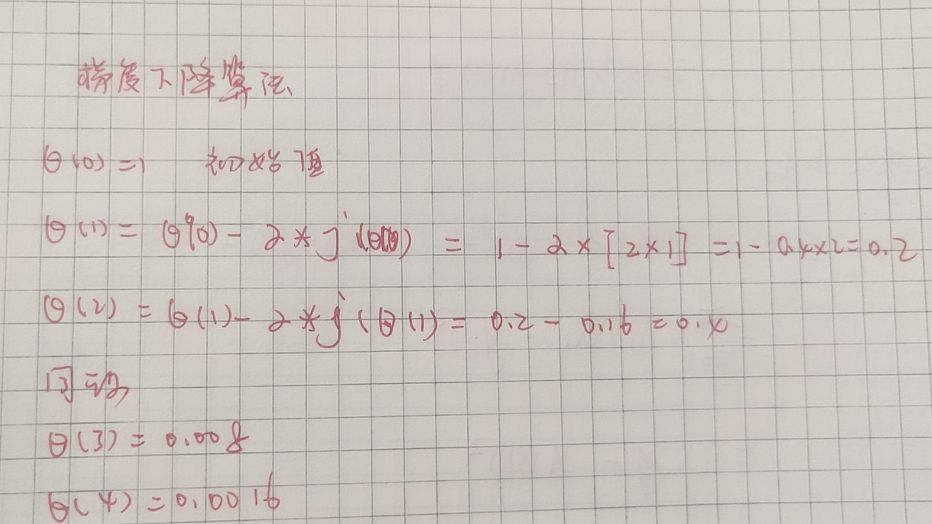 梯度下降算法
θ(0) = 1 初始值
θ(1) = θ(0) - α * J'(θ(0)) = 1 - α × [2×1] = 1 - 0.4×2 = 0.2
θ(2) = θ(1) - α * J'(θ(1)) = 0.2 - 0.16 = 0.4
θ(3) = 0.008
θ(4) = 0.0016